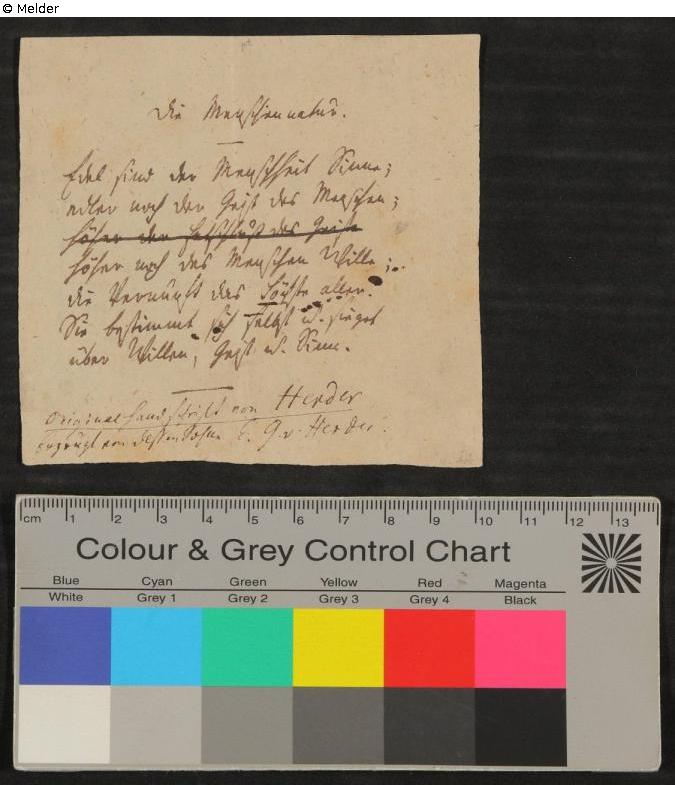 © Melder
Die Menschennatur.
Edel sind der Menschheit Sinne;
edler noch der Geist des Menschen;
höher der des Geistes
höher noch des Menschen Wille;
die Vernunft das Höchste aller.
Sie bestimmt sich selbst u. sieget
über Willen, Geist u. Sinne.
Originalhandschrift von Herder
bezeugt von dessen Sohne E. G. v. Herder.
cm 1 2 3 4 5 6 7 8 9 10 11 12 13
Colour & Grey Control Chart
Blue Cyan Green Yellow Red Magenta
White Grey 1 Grey 2 Grey 3 Grey 4 Black